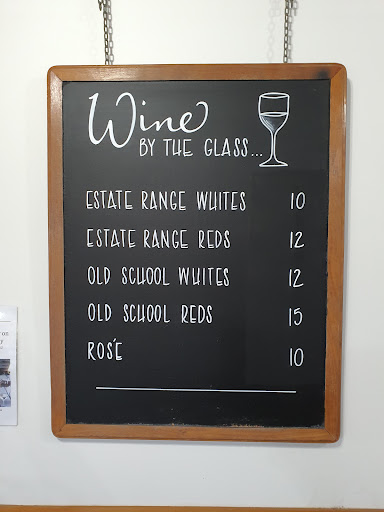 Wine
BY THE GLASS...
ESTATE RANGE WHITES 10
ESTATE RANGE REDS 12
OLD SCHOOL WHITES 12
OLD SCHOOL REDS 15
ROSÉ 10